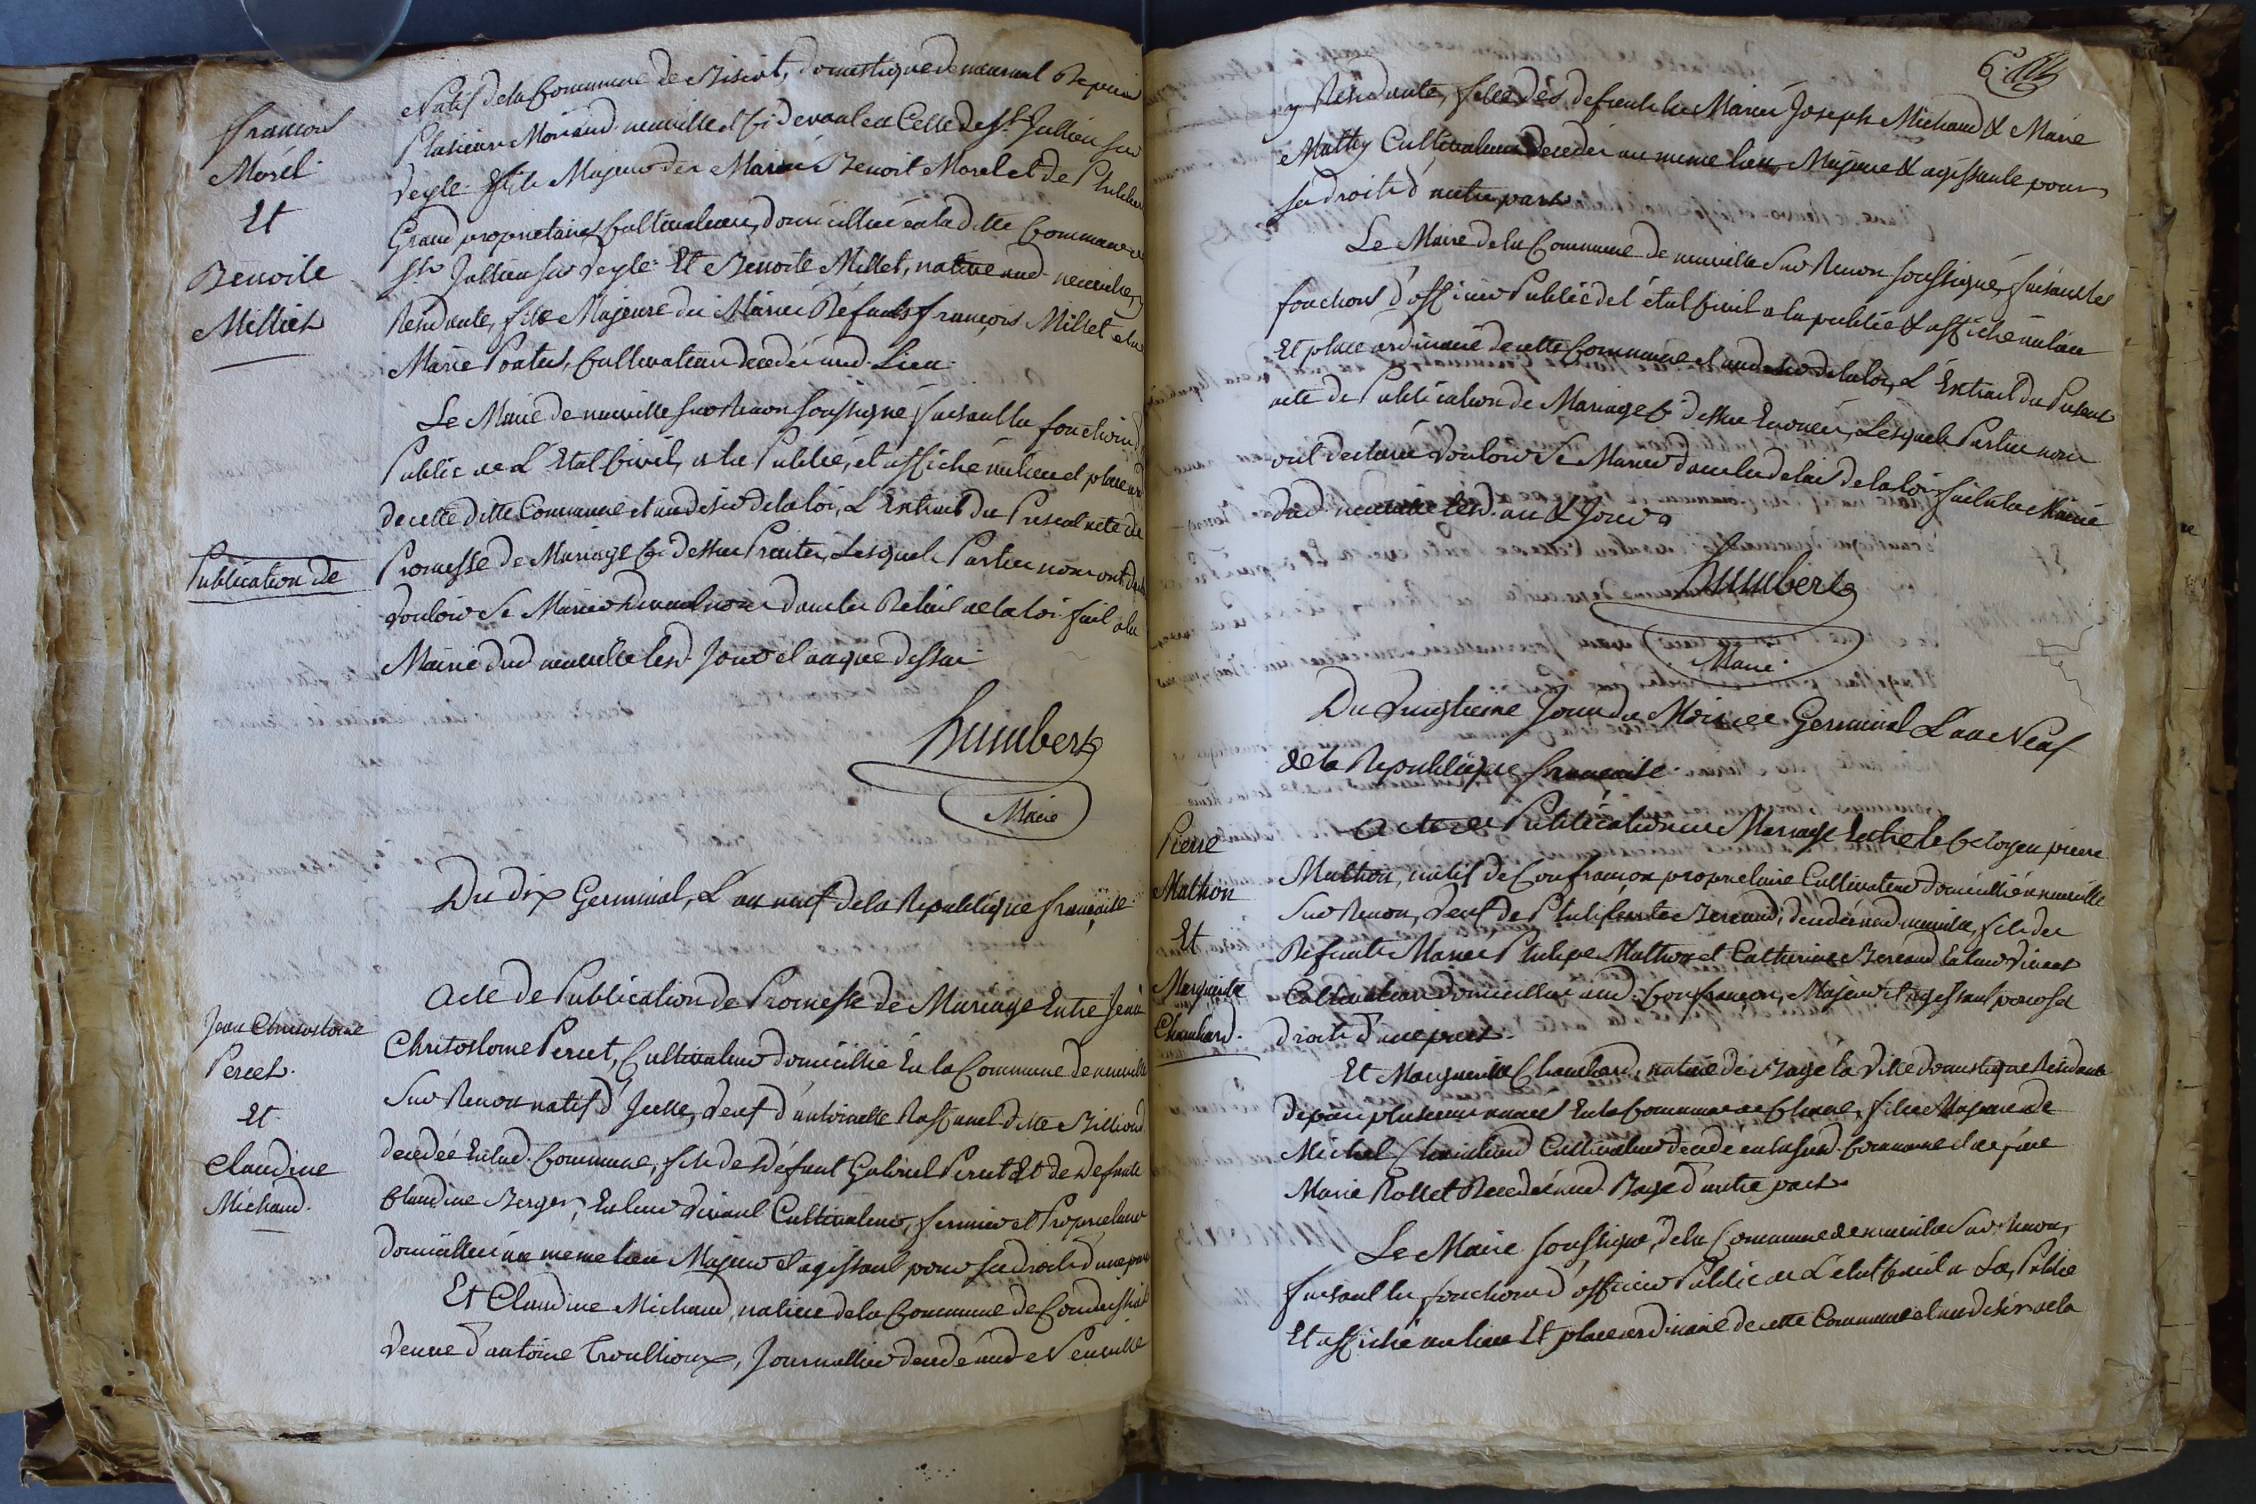 françois
Morél
Et
Benoite
Milliet
Publication de
Jean Christostome
Peret.
Et
Claudine
Michaud.
Natif de la Commune de Bisiat, domestique demeurant depuis
Plusieurs Mois aud. neuville et Ci devant en Celle de St. Jullien sur
Veyle. fils Majeur des Mariés Benoit Morel et de
Grand proprietaires Cultivateurs, domicilliés en la ditte Commune de
St. Jullien sur Veyle. Et Benoite Millet, native aud. neuville, y
Residante, fille Majeure des Mariés Défunts françois Millet et de
Marie Poatut, Cultivateurs decedés aud. Lieu.
Le Maire de neuville sur Renon soussigné, faisant les fonctions
Public de L'Etat Civil, a lu Publié, et affiché au lieu et place
de cette ditte Commune et au desir de la loi, L'Extrait du Present acte de
Promesse de Mariage Ci dessus Lesquels Parties nous ont
Vouloir Se Marier devant nous dans les Delais de la loi. fait a la
Mairie dud. neuville lesd. Jour et an que dessus.
humbert
Maire
Du dix Germinal, L'an neuf de la Republique française.
Acte de Publication de Promesse de Mariage Entre Jean
Christostome Peret, Cultivateur domicillié En la Commune de neuville
Sur Renon natif d' Veuf d'antoinette ditte
decedée En lad. Commune, fils de Défunt Gabriel Peret Et de Defunte
Claudine Berger, En leur Vivant Cultivateurs, fermier et Proprietaire
domicilliés au meme lieu Majeur et agissant pour ses droits d'une part
Et Claudine Michaud, native de la Commune de Condeissiat
Veuve d'antoine Troullioux, Journallier decedé aud. Neuville
6.
y Résidante, fille des defunts les Mariés Joseph Michaud & Marie
Mathy Cultivateurs decedés au meme lieu, Majeure & agissante pour
ses droits d'autre part.
Le Maire de la Commune de neuville Sur Renon soussigné, faisant les
fonctions d'officier Public de l'état Civil a lu publié & affiché au lieu
Et place ordinaire de cette Commune et au desir de la loi, L'Extrait du Present
acte de Publication de Mariage Ci dessus Enoncé, Lesquels Parties nous
ont declaré Vouloir Se Marier dans les delais de la loi. fait a la Mairie
dud. neuville lesd. an & Jour.
humbert
Maire.
Du Vingtieme Jour du Mois de Germinal L'an Neuf
de la Republique française.
Pierre
Mathon
Et
Marguerite
Chambard.
Acte de Publication de Mariage Entre le Citoyen pierre
Mathon, natif de Confrançon proprietaire Cultivateur domicillié a neuville
Sur Renon, Veuf de decedée aud. neuville, fils des
Defunts Mariés Philipe Mathon et Catherine En leur Vivant
Cultivateurs domicilliés aud. Confrançon, Majeur et agissant pour ses
droits d'une part.
Et Marguerite Chambard, native de Bagé la Ville domestique Résidante
depuis plusieurs années En la Commune de fille Majeure de
Michel Chambard Cultivateur decedé en la Commune et de
Marie Rollet Decedée aud. Bagé d'autre part.
Le Maire soussigné, de la Commune de neuville Sur Renon,
faisant les fonctions d'officier Public de L'état Civil a Lu, Publié
Et affiché au lieu Et place ordinaire de cette Commune et au desir de la